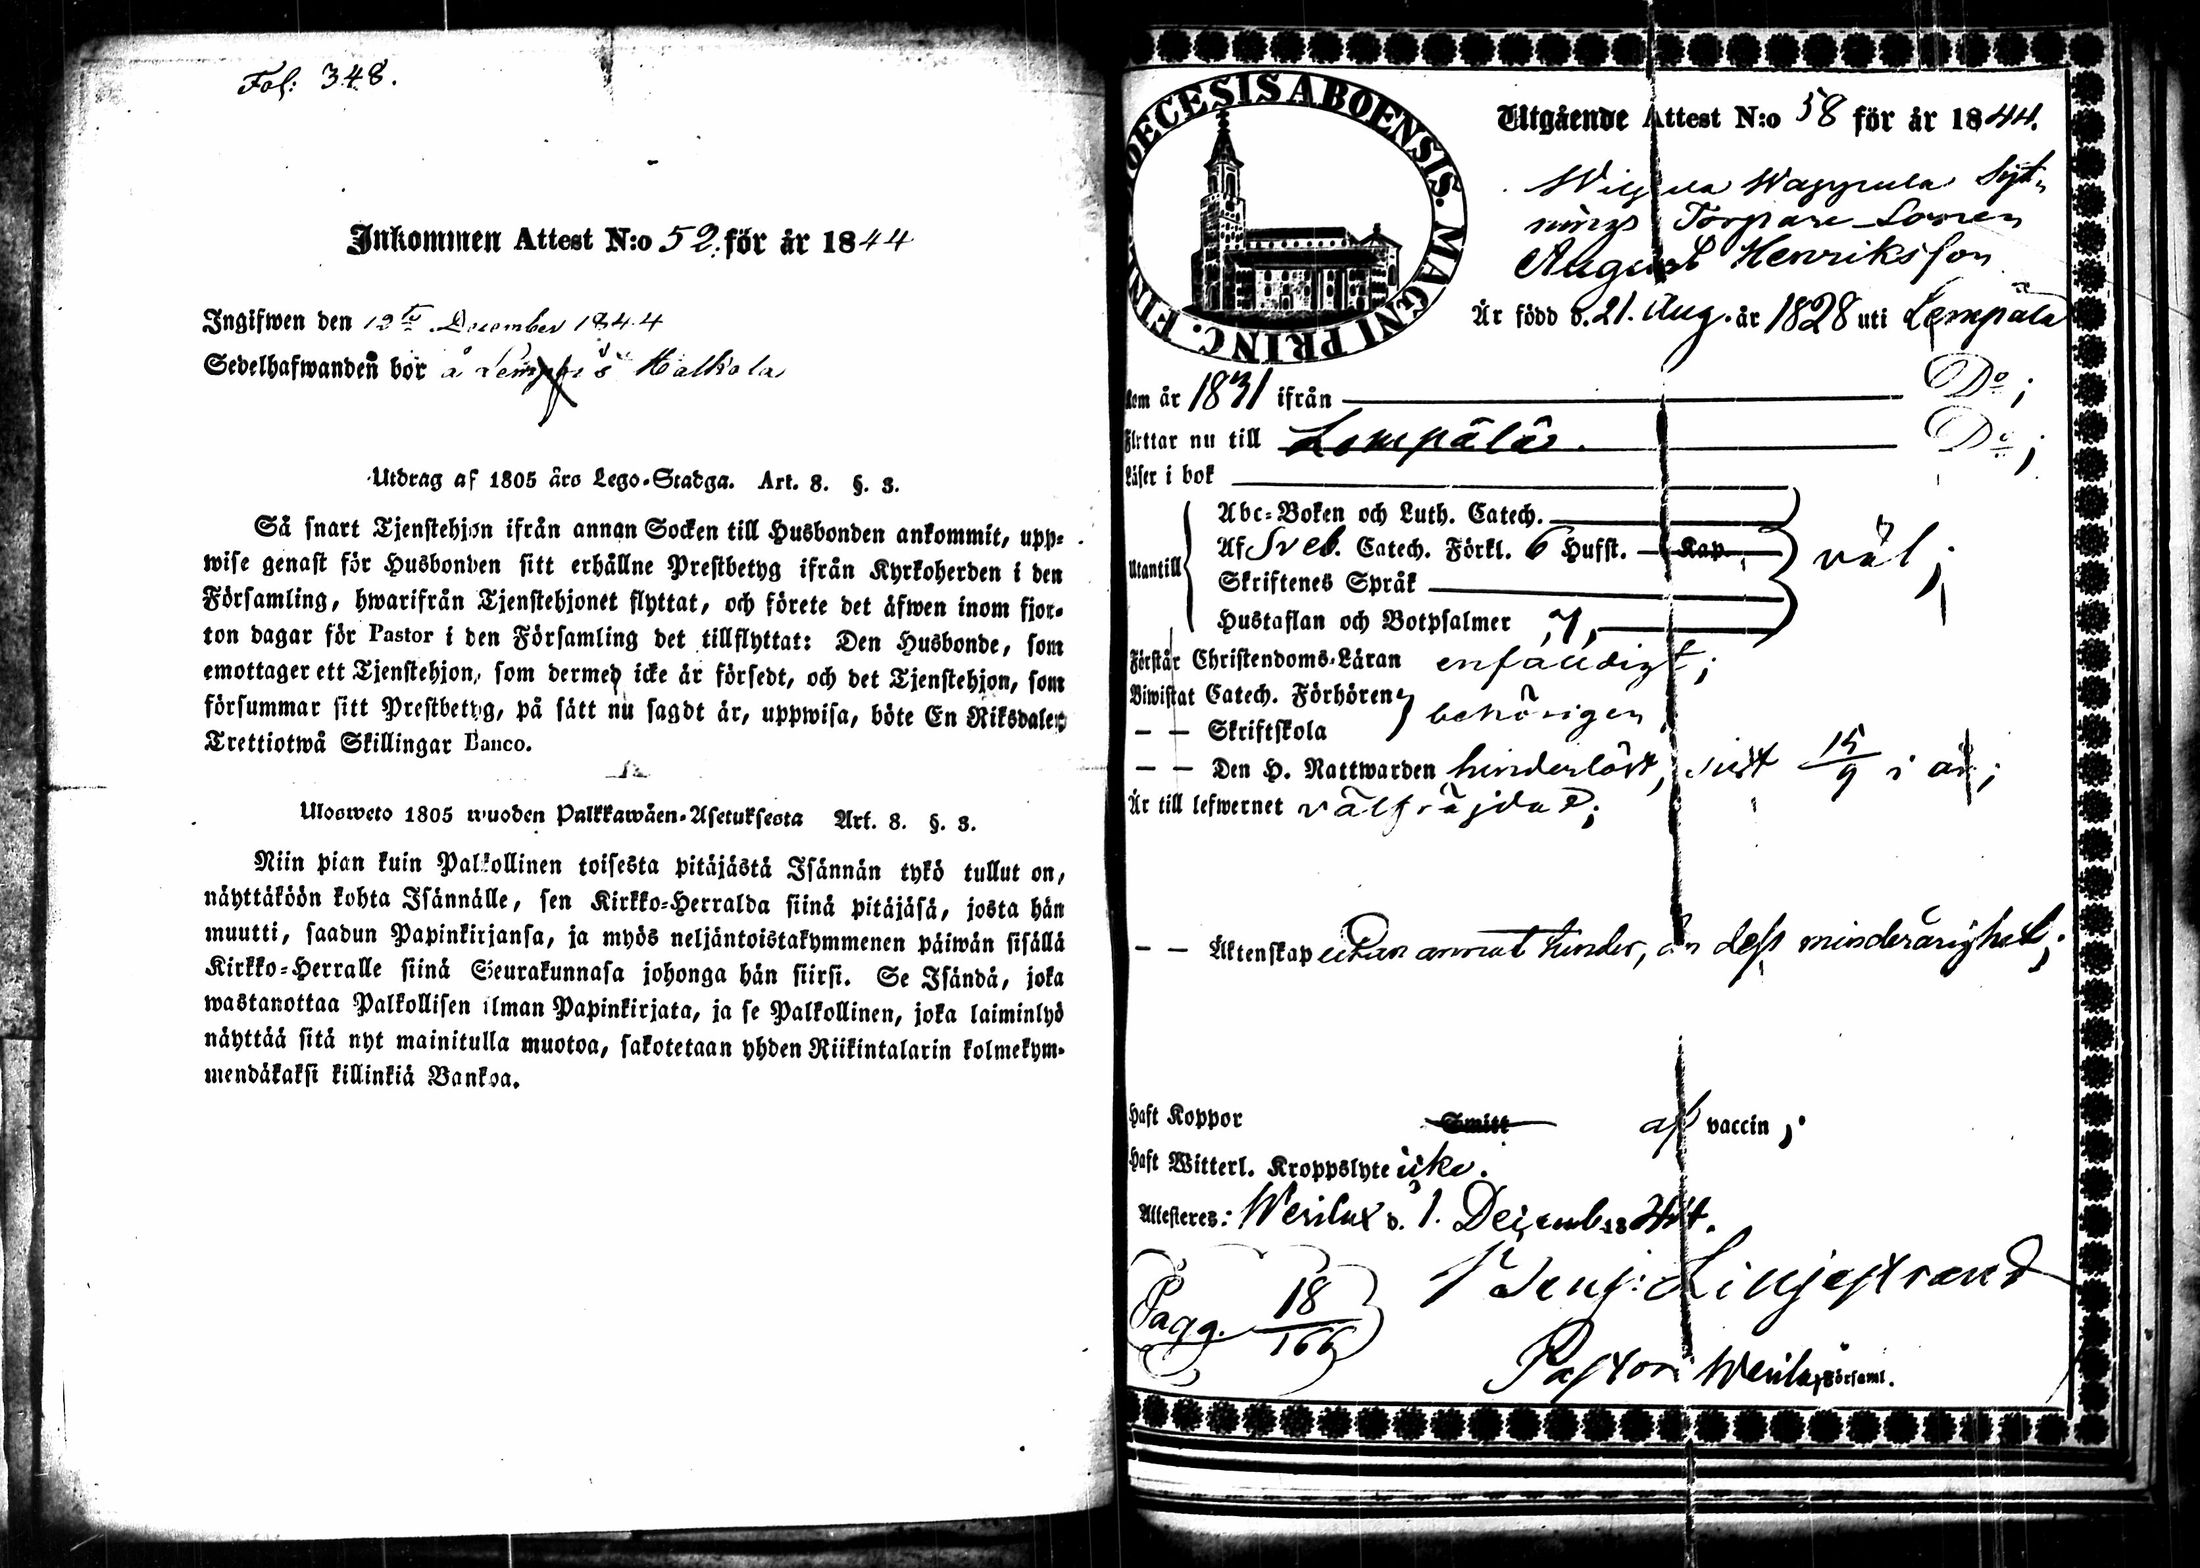 Fol: 348.
Inkommen Attest N:o 52. för år 1844
Ingifwen den 12te December 1844
Sedelhafwanden bor å Halkola
Utdrag af 1805 års Lego-Stadga. Art. 8. §. 3.
Så snart Tjenstehjon ifrån annan Socken till Husbonden ankommit, upp-
wise genast för Husbonden sitt erhållne Prestbetyg ifrån Kyrkoherden i den
Församling, hwarifrån Tjenstehjonet flyttat, och förete det äfwen inom fjor-
ton dagar för Pastor i den Församling det tillflyttat: Den Husbonde, som
emottager ett Tjenstehjon, som dermed icke är försedt, och det Tjenstehjon, som
försummar sitt Prestbetyg, på sätt nu sagdt är, uppwisa, böte En Riksdaler
Trettiotwå Skillingar Banco.
Ulosweto 1805 wuoden Palkkawäen-Asetuksesta Art. 8. §. 3.
Niin pian kuin Palkollinen toisesta pitäjästä Isännän tykö tullut on,
näyttäköön kohta Isännälle, sen Kirkko-Herralda siinä pitäjäsä, josta hän
muutti, saadun Papinkirjansa, ja myös neljäntoistakymmenen päiwän sisällä
Kirkko-Herralle siinä Seurakunnasa johonga hän siirsi. Se Isändä, joka
wastanottaa Palkollisen ilman Papinkirjata, ja se Palkollinen, joka laiminlyö
näyttää sitä nyt mainitulla muotoa, sakotetaan yhden Riikintalarin kolmekym-
mendäkaksi killinkiä Bankoa.
DIOECESIS ABOENSIS. MAGNI PRINC. FINL.
Utgående Attest N:o 58 för år 1844.
Torpare Sonen
August Henriksson
Är född d. 21. Aug. år 1828 uti Lempälä
Kom år 1831 ifrån Do;
Flyttar nu till Lempälä. Do;
Läser i bok
Utantill
Abc-Boken och Luth. Catech.
Af Sveb. Catech. Förkl. 6 Hufst. Kap. väl;
Skriftenes Språk
Hustaflan och Botpsalmer 7,
Förstår Christendoms-Läran enfaldigt;
Biwistat Catech. Förhören behörigen
— — Skriftskola
— — Den H. Nattwarden hinderlöst, sist 15/9 i år;
Är till lefwernet välfräjdad;
— — Äktenskap utan annat hinder, än dess minderårighet;
Haft Koppor Smitt af vaccin;
Haft Witterl. Kroppslyte icke.
Attesteres: Wesilax d. 1. December 1844.
Benj: Liljestrand
Pagg. 18/166
Pastor i Wesilax Församl.